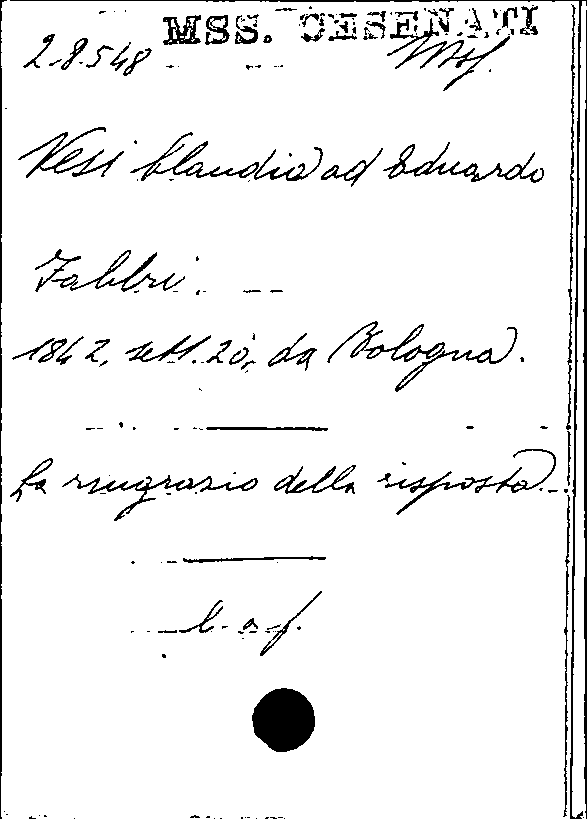 MSS. CESENATI
2.8.548
Vesi Claudia ad Eduardo
Fabbri.
1842, sett. 20, da Bologna.
La ringrazio della risposta
l. a. f.